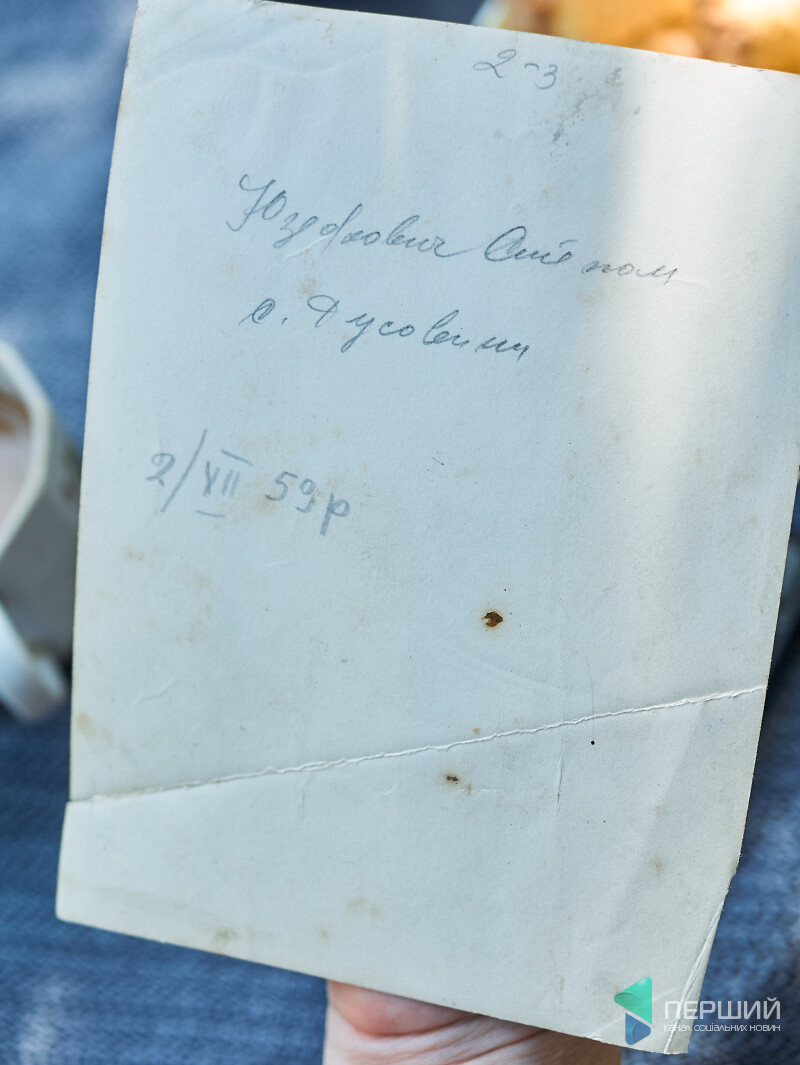 2-3
Юзефович Степан
с. Русовичи
2/VII 59р
ПЕРШИЙ
КАНАЛ СОЦІАЛЬНИХ НОВИН